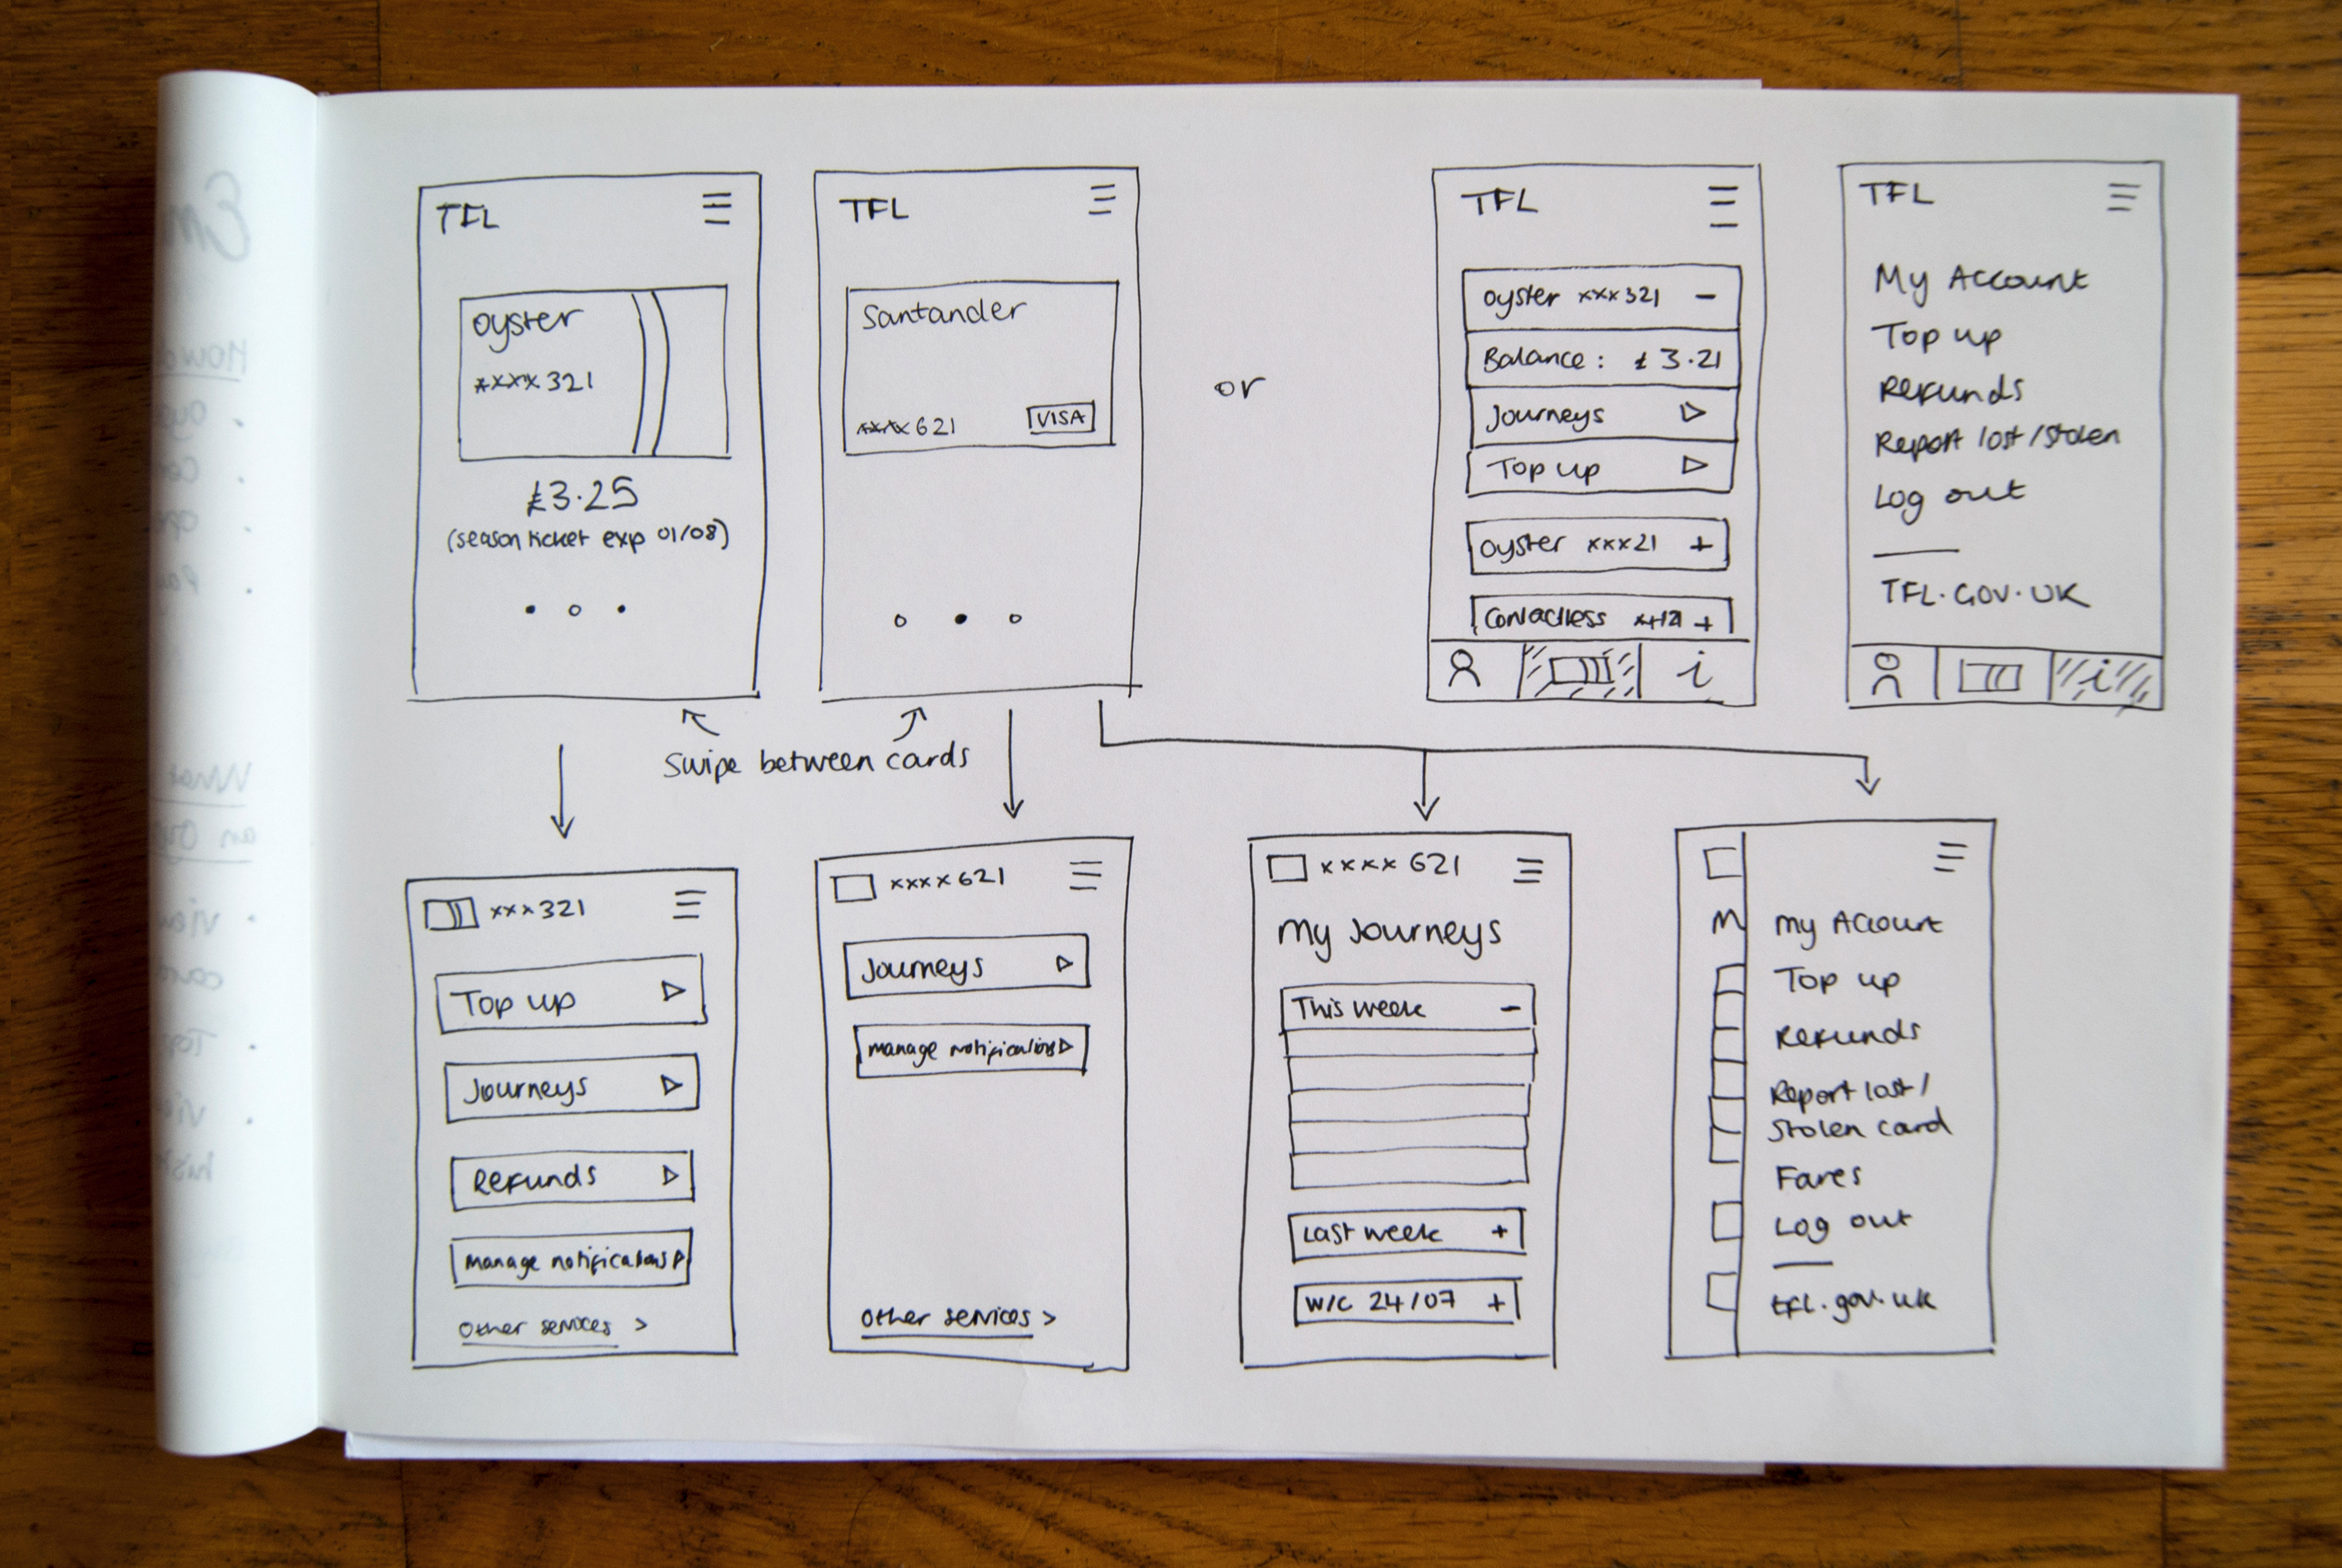 TFL
oyster
xxxx 321
£3.25
(season ticket exp 01/08)
TFL
Santander
xxxx 621
VISA
or
TFL
oyster xxx 321 –
Balance: £3.21
Journeys
Top up
oyster xxx21 +
Contactless
+
i
TFL
My Account
Top up
Refunds
Report lost/stolen
Log out
TFL.GOV.UK
i
Swipe between cards
xxx 321
Top up
Journeys
Refunds
manage notifications
other services >
xxxx 621
Journeys
manage notifications
other services >
xxxx 621
My Journeys
This week –
Last week +
W/C 24/07 +
M
My Account
Top up
Refunds
Report lost/
Stolen card
Fares
Log out
tfl.gov.uk